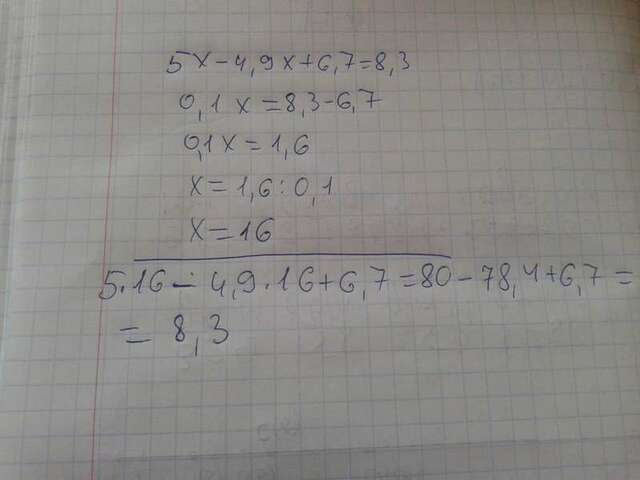 5x-4,9x+6,7=8,3
0,1x=8,3-6,7
0,1x=1,6
x=1,6:0,1
x=16
5·16-4,9·16+6,7=80-78,4+6,7=
=8,3